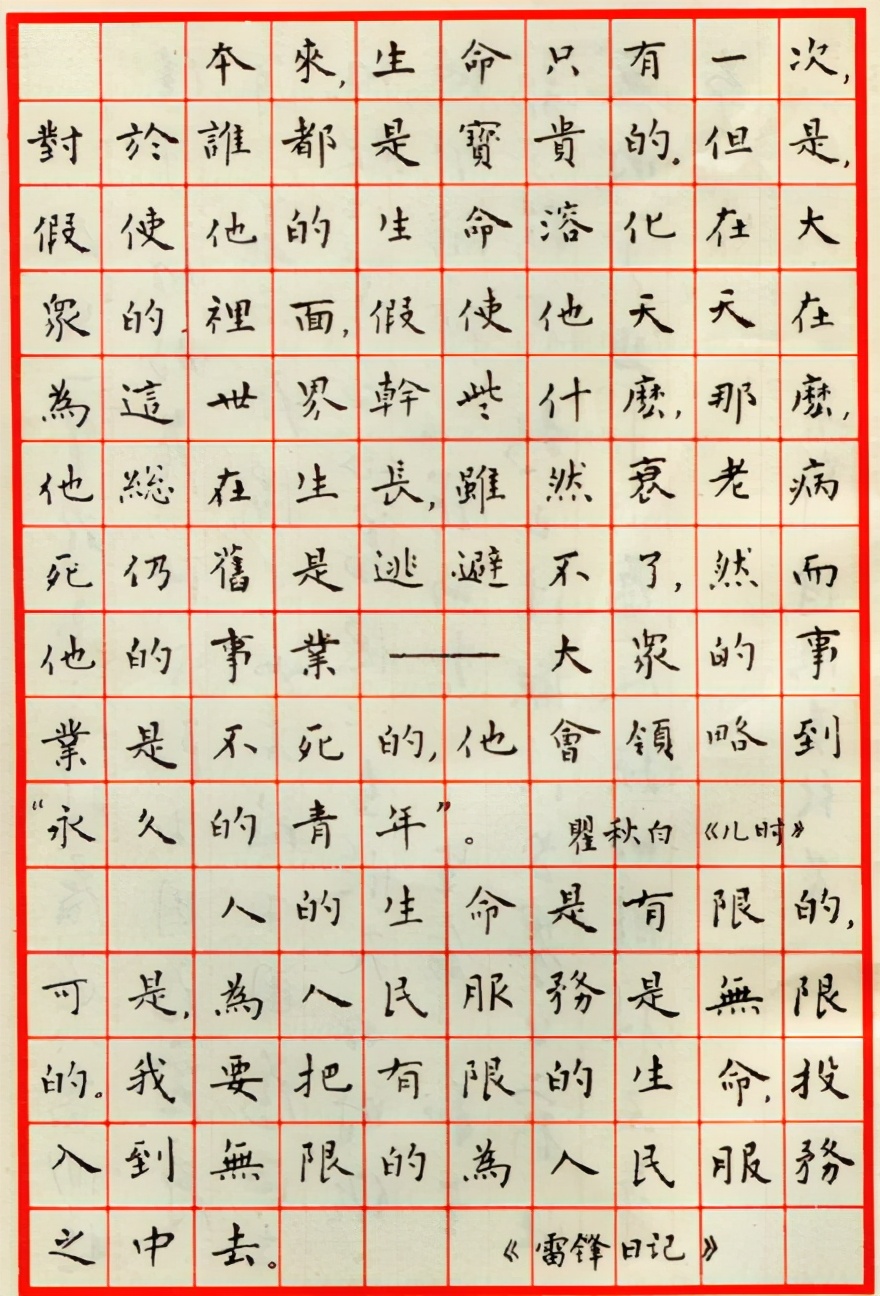 本來,生命只有一次,
對於誰都是寶貴的。但是,
假使他的生命溶化在大
眾的裡面,假使他天天在
為這世界幹些什麽,那麽,
他総在生長,雖然衰老病
死仍舊是逃避不了,然而
他的事業——大眾的事
業是不死的,他會領略到
“永久的青年”。 瞿秋白《儿时》
人的生命是有限的,
可是,為人民服務是無限
的。我要把有限的生命,投
入到無限的為人民服務
之中去。 《雷锋日记》